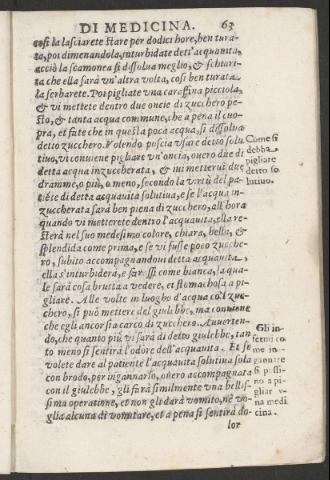 DI MEDICINA. 63
così la lasciarete stare per dodici hore, ben tura-
ta, poi dimenandola, inturbidate det. acquauita,
acciò la scamonea si dissolua meglio, &
che ella sarà un'altra volta, così ben turata
la serbarete. Poi pigliate vna caraffina picciola,
& vi mettete dentro due oncie di zucchero pe-
sto, & tanta acqua commune, che a pena il cuo-
pra, et fate che in questa poca acqua, si dissolua
detto zucchero. Volendo poscia vsare detto solu
tiuo, vi conuiene pigliare vn'oncia, ouero due di
detta acqua inzuccherata, & iui metterui due
dramme, o più, o meno, secondo la virtù del pa-
tiēte di detta acquauita solutiua, e se l'acqua in-
zuccherata sarà ben piena di zucchero, all'hora
quando vi metterete dentro l'acquauita, ella re-
sterà nel suo medesimo colore, chiara, bella, &
splendida come prima, e se vi fusse poco zucche-
ro, subito accompagnandoui detta acquauita,
ella s'inturbiderà, e farassi come bianca, la qua-
le sarà cosa brutta a vedere, et stomachosa a pi-
gliare. Alle volte in luogho d'acqua co'l zuc-
chero, si può mettere del giulebbe, ma conuiene
che egli ancor sia carco di zucchero. Auuerten-
do, che quanto più vi sarà di detto giulebbe, tan-
to meno si sentirà l'odore dell'acquauita. Et se
volete dare al patiente l'acquauita solutiua sola
con brodo, per ingannarlo, ouero accompagnata
con il giulebbe, gli farà similmente vna bellis-
sima operatione, et non gli darà vomito, nè vo-
glia alcuna di vomitare, et a pena si sentirà do-
lor
Come si
debba
pigliare
detto so
lutiuo.
Gli in-
fermi co
me in-
gannare
si possi-
no a pi-
gliar v-
na medi
cina.